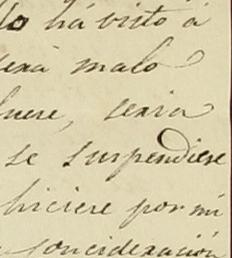 lo há visto á
será malo
luere, seria
se suspendiese
hiciere por mi
consideración